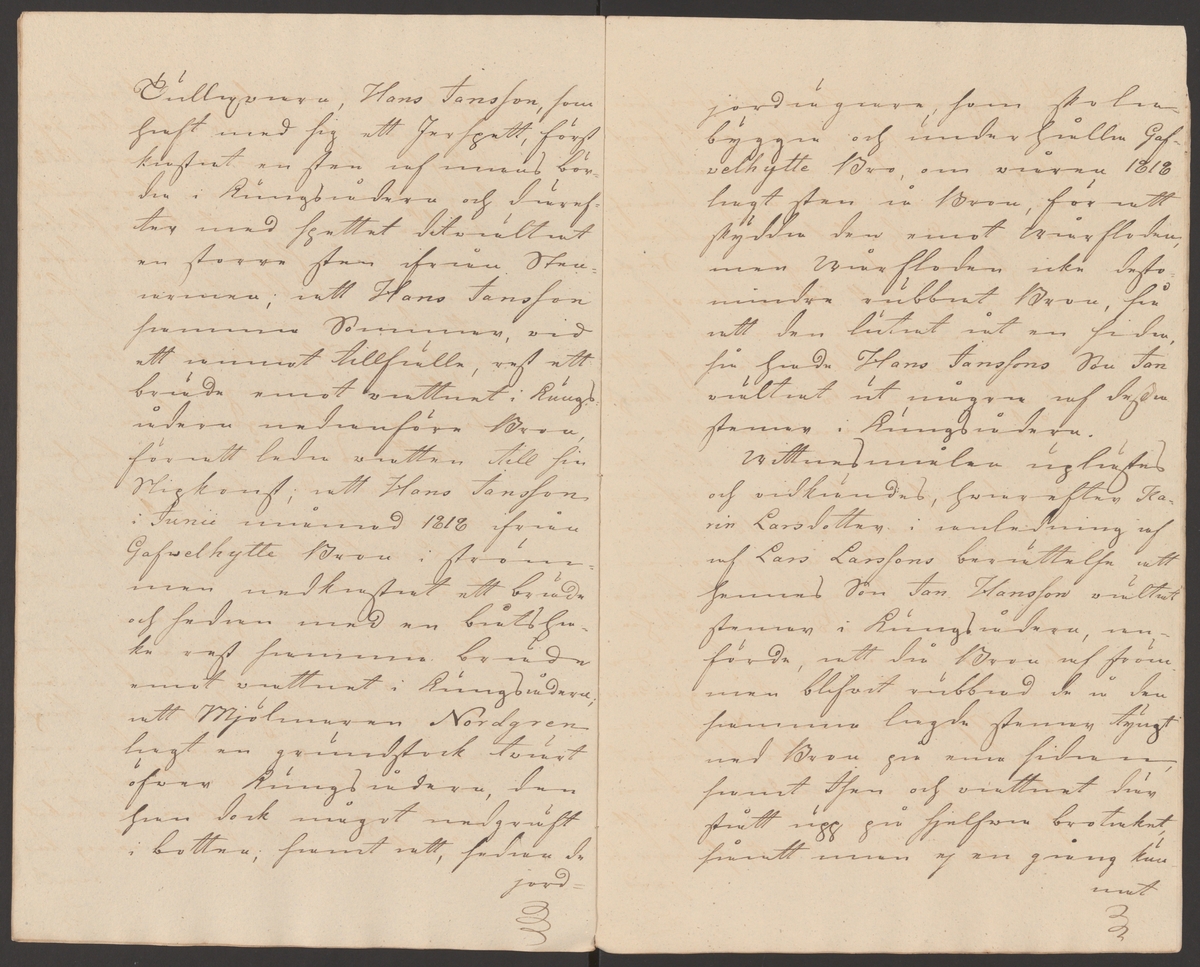 Tulligvarn, Hans Jansson, som
haft med sig ett Jernspett, först
kastat en sten af mans bör-
da i Kungsådern och däref-
ter med spettet ditvältrat
en större sten ifrån Sten-
armen; att Hans Jansson
samma Sommar, vid
ett annat tillfälle, rest ett
bräde emot vattnet i Kungs-
ådern nedanföre Bron,
föratt leda vatten till sin
Slipkonst; att Hans Jansson
i Junii månad 1818 ifrån
Gafvelhytte Bron i ström-
men nedkastat ett bräde
och sedan med en båtsha-
ke rest samma bräde
emot vattnet i Kungsådern;
att Mjölnaren Nordgren
lagt en grundstock tvärt
öfver Kungsådern, den
han dock något nedgräft
i botten; samt att, sedan de
jord-
jordägare, som skola
bygga och underhålla Gaf-
velhytte Bro, om våren 1818
lagt sten å Bron, för att
skydda den emot Wårfloden,
men Wårfloden icke desto-
mindre rubbat Bron, så
att den lutat åt en sida,
så hade Hans Janssons Son Jan
vältrat ut några af dessa
stenar i Kungsådern.
Wittnesmålen uplästes
och vidkändes, hvarefter Ka-
rin Larsdotter i anledning af
af Lars Larssons berättelse att
hennes Son Jan Hansson vältrat
stenar i Kungsådern, an-
förde, att då Bron af ström-
men blifvit rubbad de å den-
samma lagde stenar tyngt
ned Bron på ena sidan,
samt Isen och vattnet där
stått upp på sjelfva brotaket,
såratt man ej en gång kun-
nat